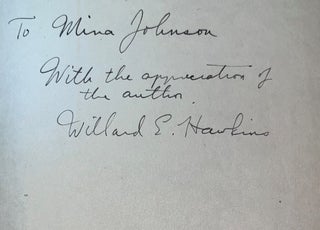 To Mina Johnson
With the appreciation of
the author.
Willard E. Hawkins